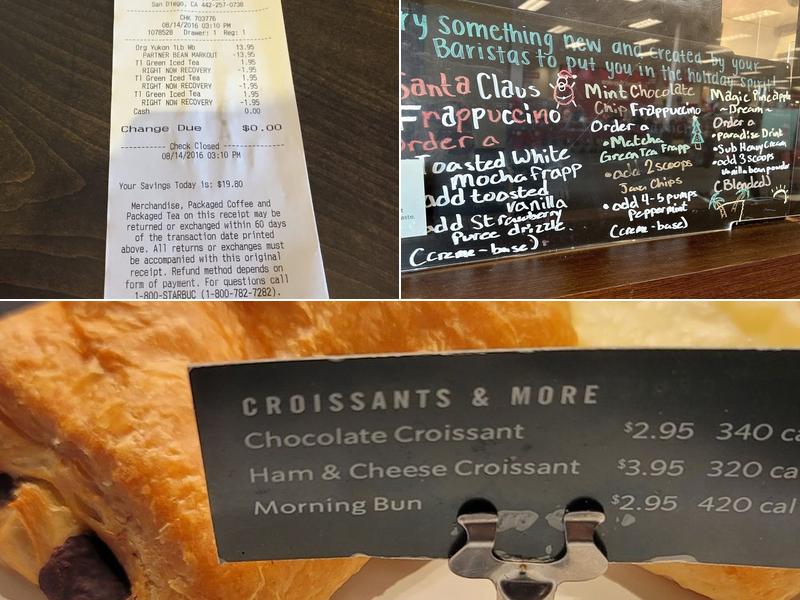 San Diego, CA 442-257-0738
CHK 703776
08/14/2016 03:10 PM
1078528 Drawer: 1 Reg: 1
Org Yukon 1lb Wb 13.95
PARTNER BEAN MARKOUT -13.95
Tl Green Iced Tea 1.95
RIGHT NOW RECOVERY -1.95
Tl Green Iced Tea 1.95
RIGHT NOW RECOVERY -1.95
Tl Green Iced Tea 1.95
RIGHT NOW RECOVERY -1.95
Cash 0.00
Change Due $0.00
Check Closed
08/14/2016 03:10 PM
Your Savings Today is: $19.80
Merchandise, Packaged Coffee and
Packaged Tea on this receipt may be
returned or exchanged within 60 days
of the transaction date printed
above. All returns or exchanges must
be accompanied with this original
receipt. Refund method depends on
form of payment. For questions call
1-800-STARBUC (1-800-782-7282).
ry something new and created by your
Baristas to put you in the holiday spirit!
Santa Claus
Frappuccino
order a
Toasted White
Mocha Frapp
add toasted
vanilla
add Strawberry
Puree drizzle
(creme-base)
Mint Chocolate
Chip Frappuccino
Order a
•Matcha
Green Tea Frapp
•add 2 scoops
Java Chips
•add 4-5 pumps
Peppermint
(creme-base)
Magic Pineapple
~Dream~
Order a
•Paradise Drink
•Sub Heavy Cream
•add 3 scoops
vanilla bean powder
(Blended)
CROISSANTS & MORE
Chocolate Croissant $2.95 340 ca
Ham & Cheese Croissant $3.95 320 ca
Morning Bun $2.95 420 cal